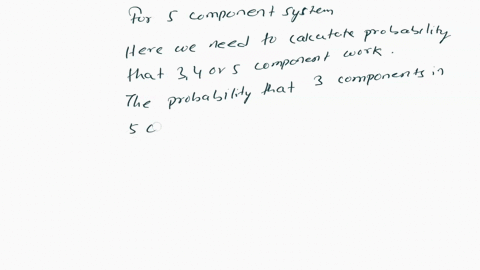 For 5 component system
Here we need to calculate probability
that 3,4 or 5 component work.
The probability that 3 components in
5 c